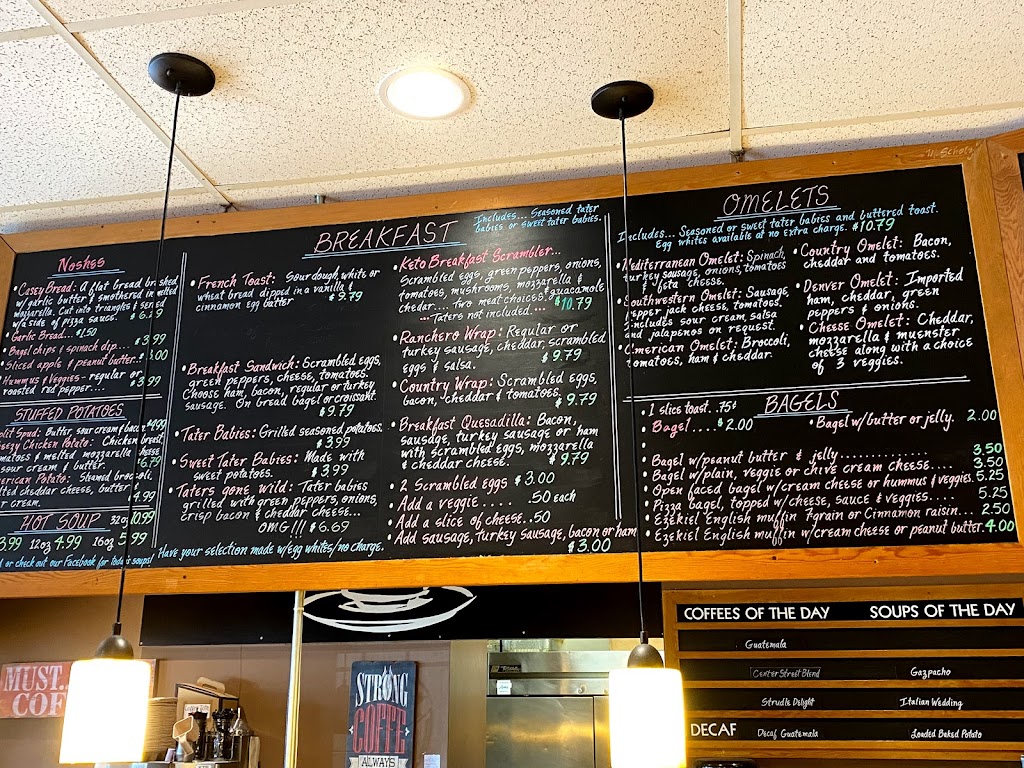 Noshes
• Casey Bread: A flat bread brushed
w/garlic butter & smothered in melted
mozzarella. Cut into triangles & served
w/a side of pizza sauce.
• Garlic Bread... $1.50
• Bagel chips & spinach dip.... $3.99
• Sliced apple & peanut butter..
• Hummus & Veggies - regular or
roasted red pepper...
STUFFED POTATOES
Spud: Butter, sour cream &
Cheezy Chicken Potato: Chicken breast,
tomatoes & melted mozzarella cheese
sour cream & butter. $6.79
American Potato: Steamed broccoli,
melted cheddar cheese, butter
sour cream. 4.99
HOT SOUP 32oz 10.99
3.99 12oz 4.99 16oz 5.99
or check out our Facebook for today's soups!
BREAKFAST
Includes... Seasoned tater
babies or sweet tater babies.
• French Toast: Sourdough, white or
wheat bread dipped in a vanilla &
cinnamon egg batter $9.79
• Breakfast Sandwich: Scrambled eggs,
green peppers, cheese, tomatoes.
Choose ham, bacon, regular or turkey
sausage. On bread, bagel or croissant.
$9.79
• Tater Babies: Grilled seasoned potatoes.
$3.99
• Sweet Tater Babies: Made with
sweet potatoes. $3.99
• Taters gone wild: Tater babies
grilled with green peppers, onions,
crisp bacon & cheddar cheese...
OMG!!! $6.69
Have your selection made w/egg whites/no charge.
• Keto Breakfast Scrambler...
Scrambled eggs, green peppers, onions,
tomatoes, mushrooms, mozzarella &
chedar.... two meat choices. guacamole
... Taters not included.... $10.79
• Ranchero Wrap: Regular or
turkey sausage, cheddar, scrambled
eggs & salsa. $9.79
• Country Wrap: Scrambled eggs,
bacon, cheddar & tomatoes. $9.79
• Breakfast Quesadilla: Bacon,
sausage, turkey sausage or ham
with scrambled eggs, mozzarella
& cheddar cheese. $9.79
• 2 Scrambled eggs $3.00
• Add a veggie..... .50 each
• Add a slice of cheese..50
• Add sausage, turkey sausage, bacon or ham
$3.00
OMELETS
Includes... Seasoned or sweet tater babies and buttered toast.
Egg whites available at no extra charge. $10.79
Mediterranean Omelet: Spinach,
turkey sausage, onions, tomatoes
& feta cheese.
Southwestern Omelet: Sausage,
pepper jack cheese, tomatoes.
Includes sour cream, salsa
and jalapenos on request.
American Omelet: Broccoli,
tomatoes, ham & cheddar.
• Country Omelet: Bacon,
cheddar and tomatoes.
• Denver Omelet: Imported
ham, cheddar, green
peppers & onions.
• Cheese Omelet: Cheddar,
mozzarella & muenster
cheese along with a choice
of 3 veggies.
BAGELS
• 1 slice toast..75¢
• Bagel.... $2.00
• Bagel w/butter or jelly. 2.00
• Bagel w/peanut butter & jelly.............. 3.50
• Bagel w/plain, veggie or chive cream cheese.... 3.50
• Open faced bagel w/cream cheese or hummus & veggies. 5.25
• Pizza bagel, topped w/cheese, sauce & veggies.... 5.25
• Ezekiel English muffin 7grain or Cinnamon raisin... 2.50
• Ezekiel English muffin w/cream cheese or peanut butter. 4.00
COFFEES OF THE DAY SOUPS OF THE DAY
Guatemala
Center Street Blend Gazpacho
Strudle Delight Italian Wedding
DECAF Decaf Guatemala Loaded Baked Potato
MUST.
COF
STRONG
COFFE
ALWAYS